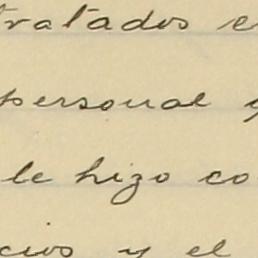 tratados e
personal y
le hizo co
cios y el